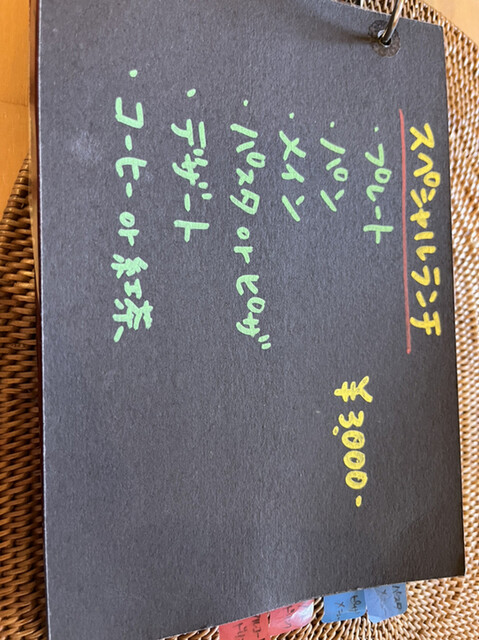 スペシャルランチ
・プレート
・パン
・メイン
・パスタ or ピザ
・デザート
・コーヒー or 紅茶
¥3,000-